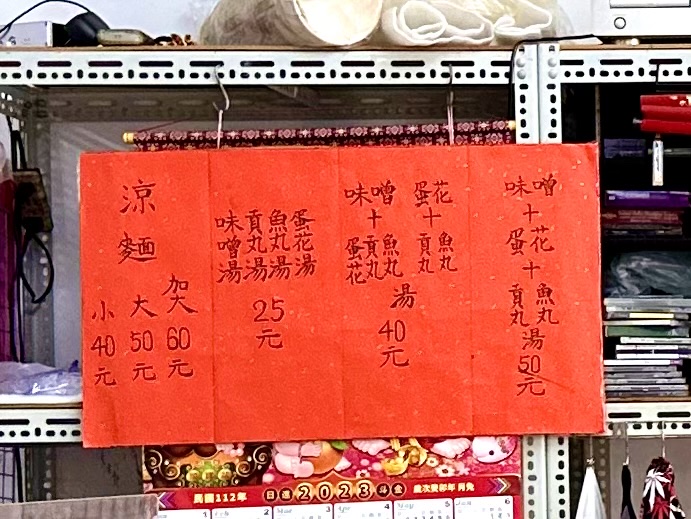 涼麵
小 40元
大 50元
加大 60元
味噌湯
貢丸湯
魚丸湯
蛋花湯
25元
味噌 + 蛋花 貢丸 魚丸
蛋花 + 貢丸 魚丸
湯
40元
味噌
+
蛋花
+
貢丸 魚丸
湯
50元
民國112年
日進2023斗金
歲次癸卯年 肖兔